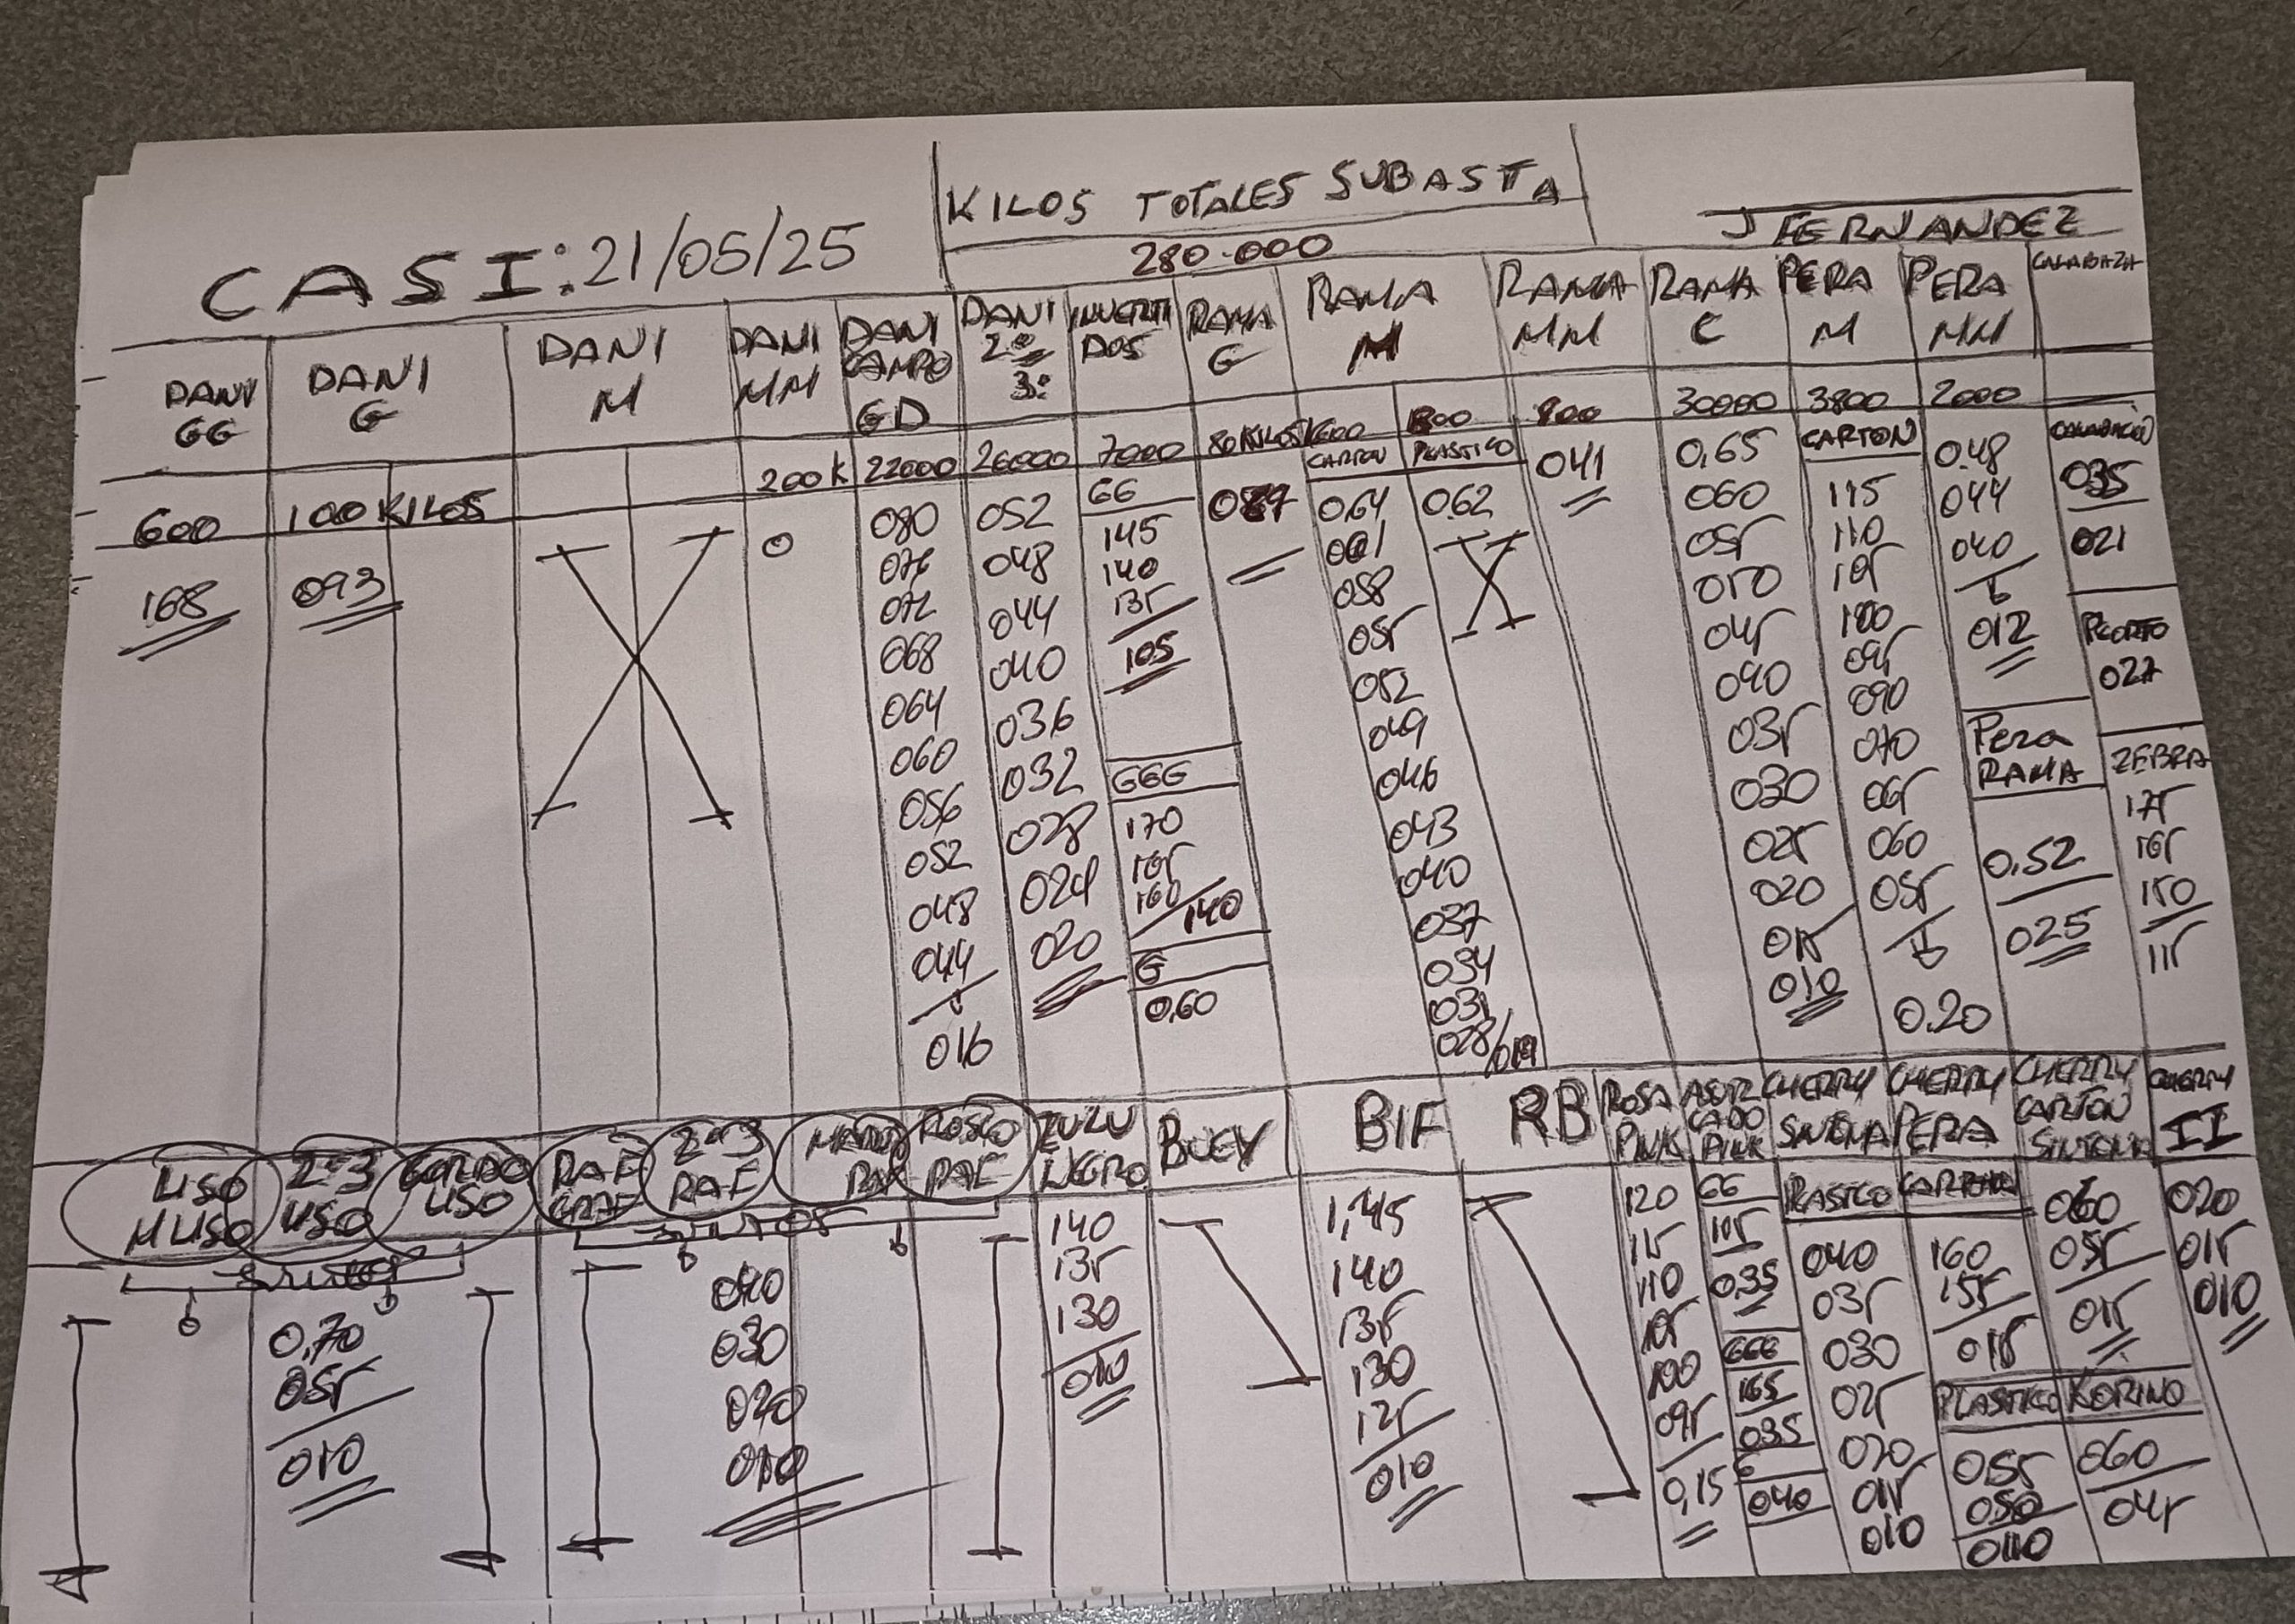 CASI: 21/05/25
KILOS TOTALES SUBASTA
280.000
J FERNANDEZ
DANI GG
600
168
DANI G
100 KILOS
093
DANI M
DANI MM
200 K
0
DANI CAMPO GD
22000
080
076
072
068
064
060
056
052
048
044
016
DANI 2ª 3ª
26000
052
048
044
040
036
032
028
024
020
INVERTIDOS
7000
GG
145
140
135
105
GGG
170
165
160/140
G
0,60
RAMA G
80 KILOS
RAMA M
CARTON
0,64
061
058
055
052
049
046
043
040
037
034
031
028/019
PLASTICO
0,62
RAMA MM
800
041
RAMA C
30000
0,65
060
055
050
045
040
035
030
025
020
015
010
PERA M
3800
CARTON
115
110
105
100
095
090
070
065
060
055
0.20
PERA MM
2000
0.48
044
040
012
Pera RAMA
0,52
025
CALABAZA
CALABACIN
035
021
P CORTO
027
ZEBRA
175
165
150
115
LISO
M LISO
2ª 3
LISO
GORDO
LISO
JUNTOS
0,70
055
010
RAF
GRAF
2ª 3
RAF
RAF
ROSCO
RAF
JUNTOS
040
030
020
010
ZULU NEGRO
140
135
130
010
BUEY
BIF
1,45
140
135
130
125
010
RB
ROSA PINK
120
115
110
105
100
095
0,15
ASURCADO PINK
GG
105
0,35
GGG
165
035
G
040
CHERRY SINTONIA
PLASTICO
040
035
030
025
020
015
010
CHERRY PERA
CARTON
160
155
015
PLASTICO
055
050
010
CHERRY CARTON SINTONIA
060
055
015
KORINO
060
045
CHERRY II
020
015
010